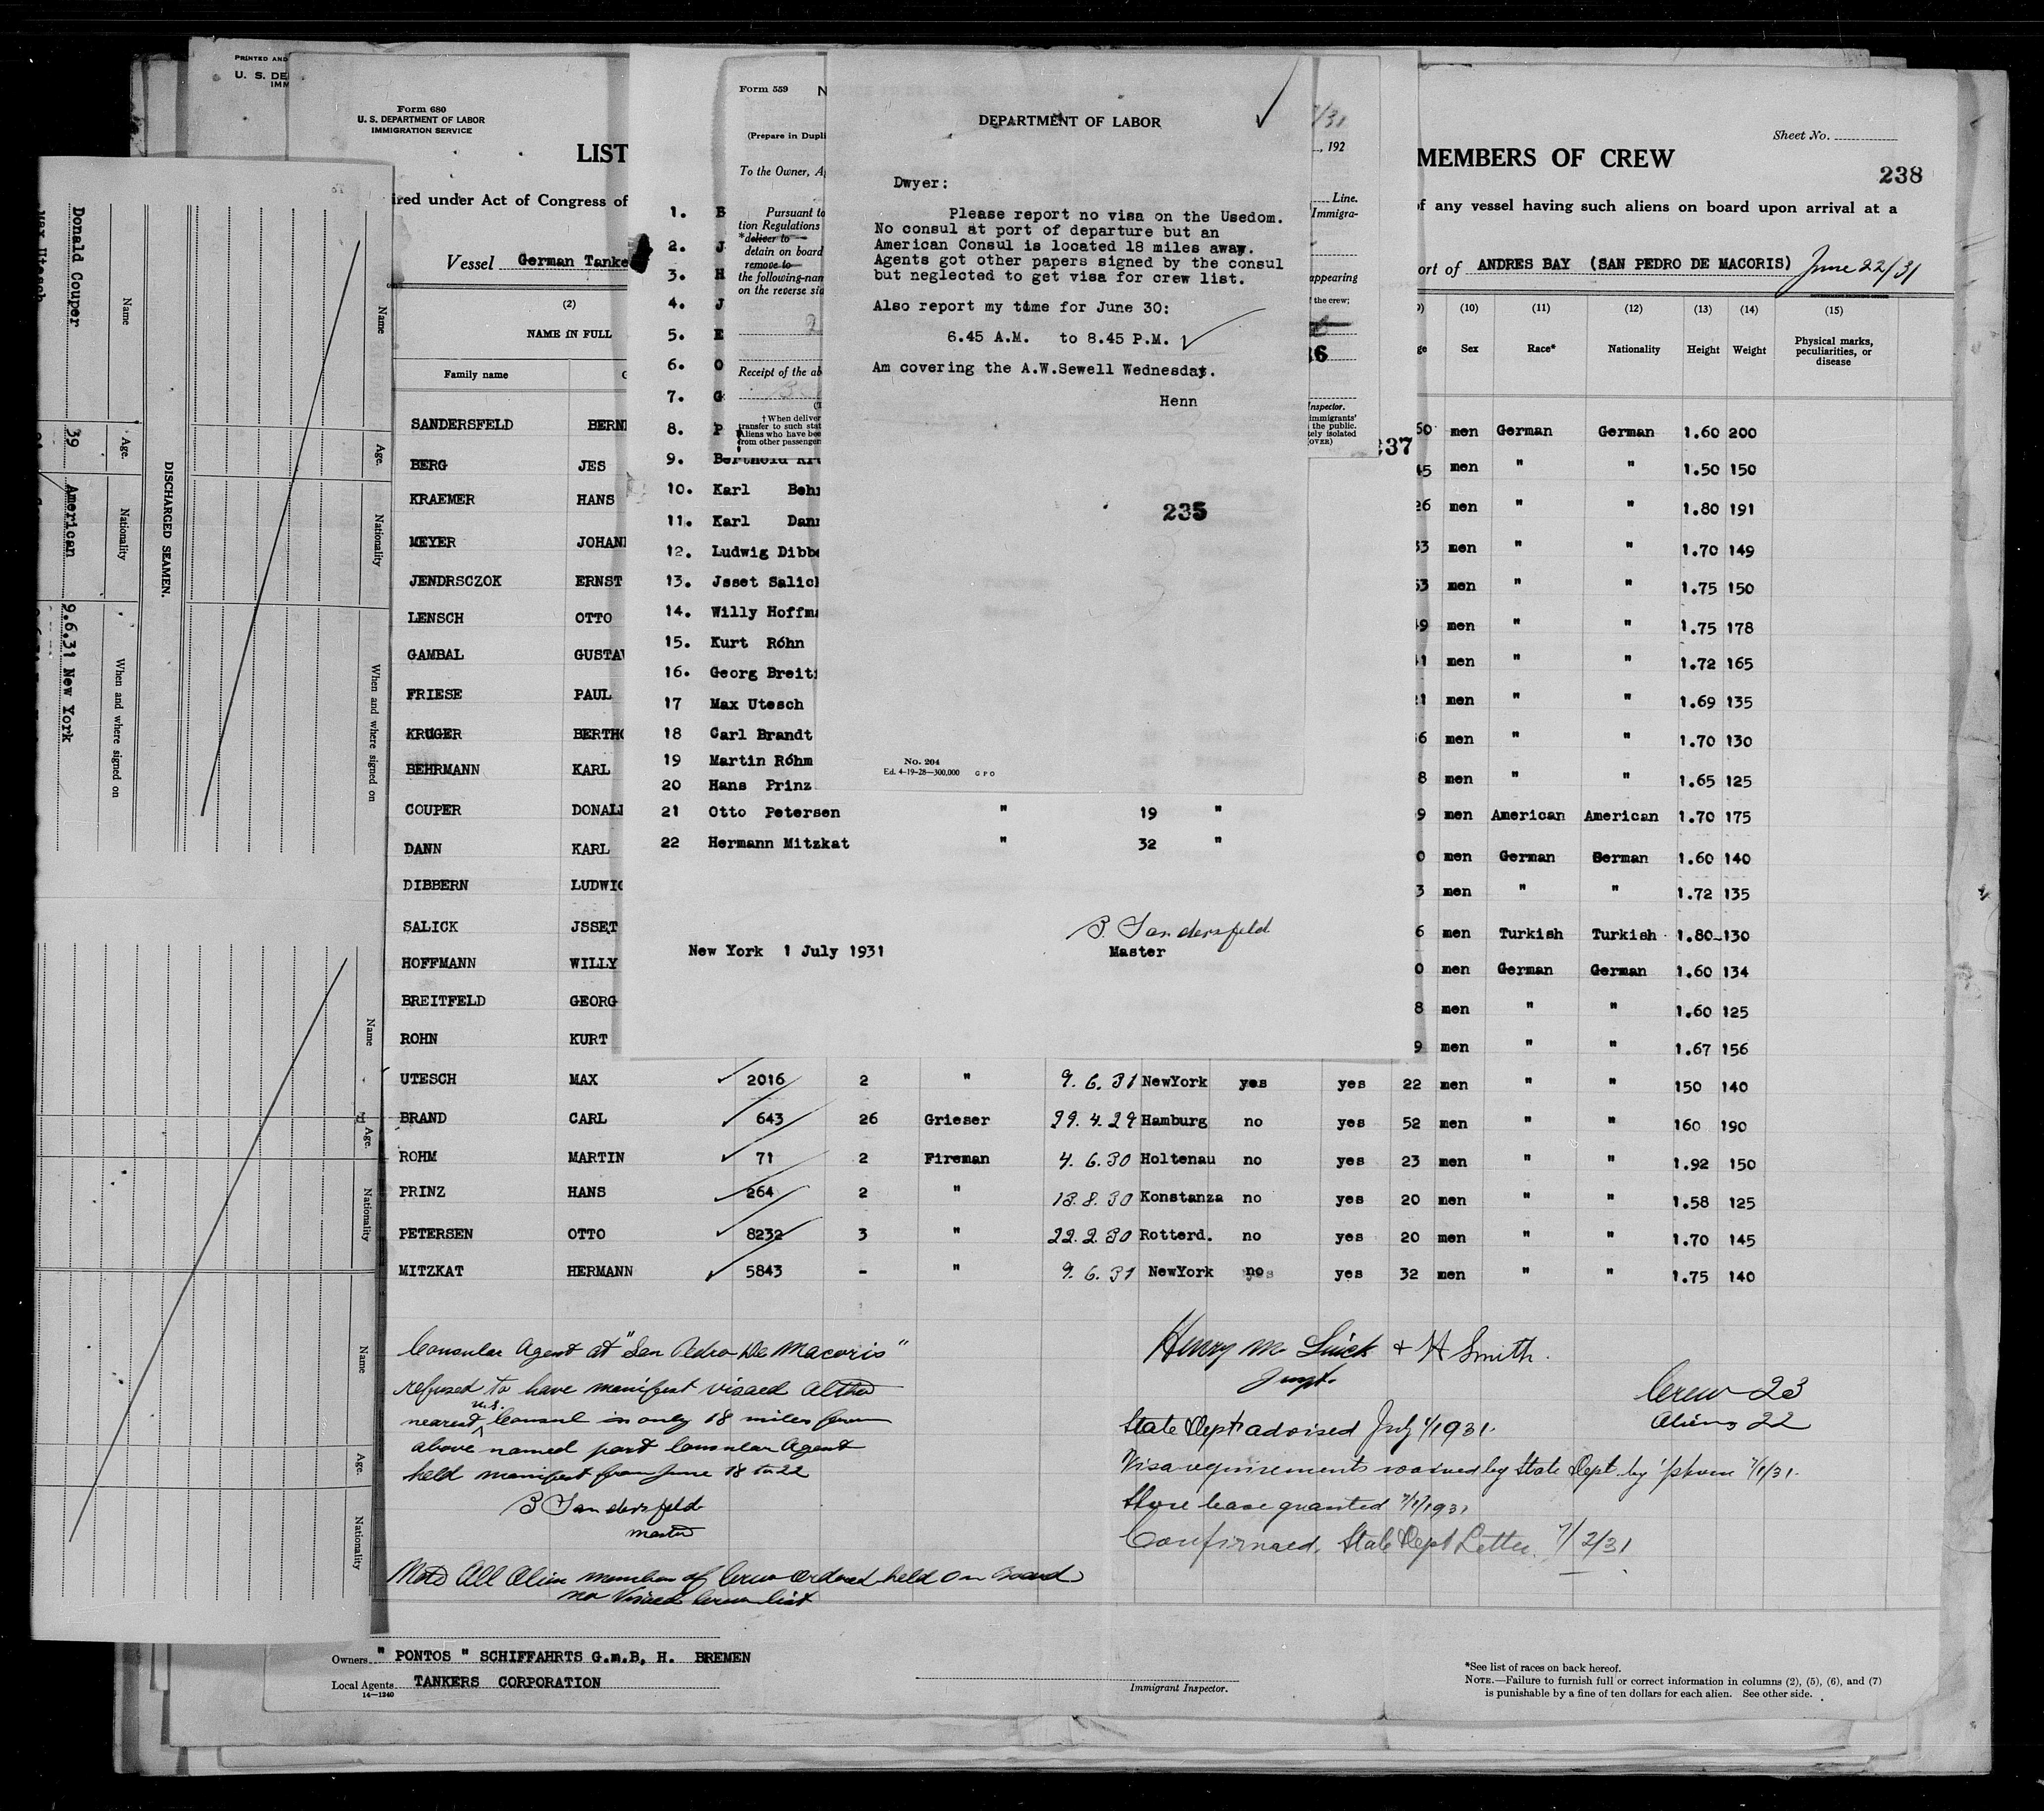 PRINTED AND
U. S. DE
IMM
Form 680
U. S. DEPARTMENT OF LABOR
IMMIGRATION SERVICE
LIST
MEMBERS OF CREW
Sheet No.
238
ired under Act of Congress of
of any vessel having such aliens on board upon arrival at a
Vessel German Tanke
ort of ANDRES BAY (SAN PEDRO DE MACORIS) June 22/31
(2)
NAME IN FULL
Family name
(10) (11) (12) (13) (14) (15)
ge Sex Race* Nationality Height Weight Physical marks, peculiarities, or disease
SANDERSFELD BERN 50 men German German 1.60 200
BERG JES 45 men " " 1.50 150
KRAEMER HANS 26 men " " 1.80 191
MEYER JOHAN 33 men " " 1.70 149
JENDRSCZOK ERNST 53 men " " 1.75 150
LENSCH OTTO 49 men " " 1.75 178
GAMBAL GUSTAV 41 men " " 1.72 165
FRIESE PAUL 21 men " " 1.69 135
KRUGER BERTHO 6 men " " 1.70 130
BEHRMANN KARL 8 men " " 1.65 125
COUPER DONALD 9 men American American 1.70 175
DANN KARL 0 men German German 1.60 140
DIBBERN LUDWIG 3 men " " 1.72 135
SALICK JSSET 6 men Turkish Turkish 1.80 130
HOFFMANN WILLY 0 men German German 1.60 134
BREITFELD GEORG 8 men " " 1.60 125
ROHN KURT 9 men " " 1.67 156
UTESCH MAX 2016 2 " 9.6.31 NewYork yes yes 22 men " " 150 140
BRAND CARL 643 26 Grieser 29.4.29 Hamburg no yes 52 men " " 160 190
ROHM MARTIN 71 2 Fireman 4.6.30 Holtenau no yes 23 men " " 1.92 150
PRINZ HANS 264 2 " 13.8.30 Konstanza no yes 20 men " " 1.58 125
PETERSEN OTTO 8232 3 " 22.2.30 Rotterd. no yes 20 men " " 1.70 145
MITZKAT HERMANN 5843 - " 9.6.31 NewYork no yes 32 men " " 1.75 140
Consular Agent at "San Pedro De Macoris"
refused to have manifest visaed altho
nearest U.S. Consul is only 18 miles from
above named port Consular Agent
held manifest from June 18 to 22
B Sandersfeld
master
Note All Alien members of Crew ordered held on board
no Visaed Crew list
Henry M. + H Smith.
Inspt.
Crew 23
Aliens 22
State Dept advised July 1/1931.
Visa requirements waived by State Dept. by 'phone 7/1/31.
Shore leave granted 7/1/1931
Confirmed. State Dept Letter. 7/2/31
Owners " PONTOS " SCHIFFAHRTS G.m.B, H. BREMEN
Local Agents TANKERS CORPORATION
14—1240
Immigrant Inspector.
*See list of races on back hereof.
NOTE.—Failure to furnish full or correct information in columns (2), (5), (6), and (7)
is punishable by a fine of ten dollars for each alien. See other side.
1. B
2. J
3. H
4. J
5. E
6. O
7. G
8. P
9. Berthold Kr
10. Karl Behr
11. Karl Dann
12. Ludwig Dibbe
13. Jsset Salich
14. Willy Hoffma
15. Kurt Röhn
16. Georg Breit
17 Max Utesch
18 Carl Brandt
19 Martin Röhm
20 Hans Prinz
21 Otto Petersen " 19 "
22 Hermann Mitzkat " 32 "
B. Sandersfeld
New York 1 July 1931 Master
237
Form 559 N
(Prepare in Dupli
, 192
To the Owner, A
Line.
Pursuant to
Immigra-
tion Regulations
*deliver to
detain on board
remove to
the following-nam
appearing
on the reverse si
the crew;
Receipt of the ab
Inspector.
†When deliver
immigrants'
transfer to such stat
the public.
Aliens who have bee
tely isolated
from other passenger
OVER)
DEPARTMENT OF LABOR
Dwyer:
Please report no visa on the Usedom.
No consul at port of departure but an
American Consul is located 18 miles away.
Agents got other papers signed by the consul
but neglected to get visa for crew list.
Also report my time for June 30:
6.45 A.M. to 8.45 P.M.
Am covering the A.W.Sewell Wednesday.
Henn
235
No. 204
Ed. 4-19-28—300,000 GPO
DISCHARGED SEAMEN.
Name Age. Nationality When and where signed on
Donald Couper 39 American 9.6.31 New York
Max Utesch
Name Age. Nationality When and where signed on
Name Age. Nationality
Name Age. Nationality